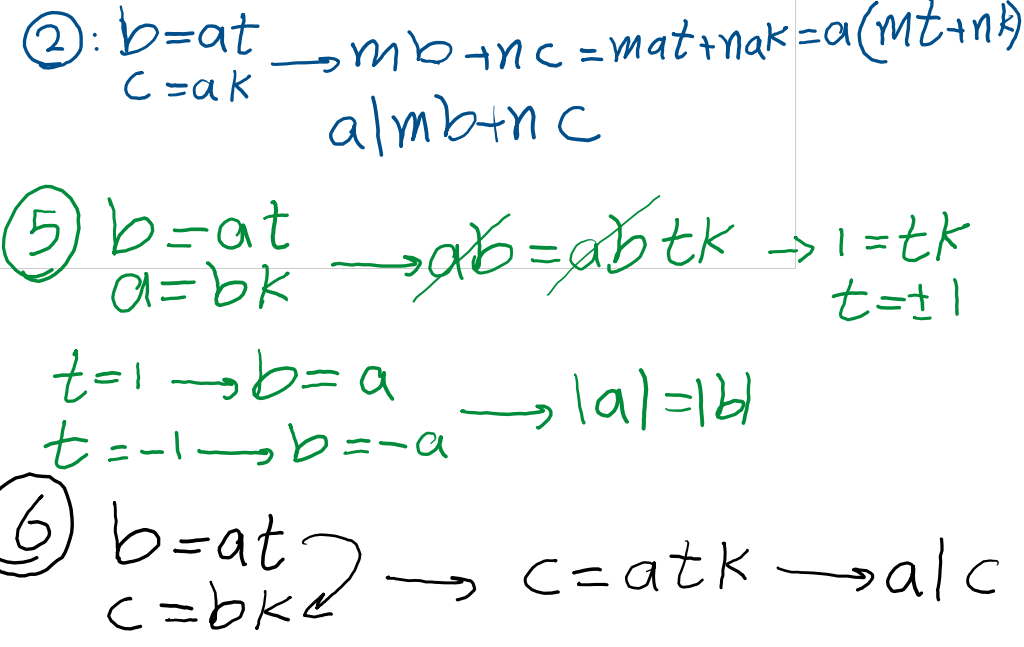 ②: b=at
c=ak → mb+nc=mat+nak=a(mt+nk)
a|mb+nc
⑤ b=at
a=bk → ab=abtk → 1=tk
t=±1
t=1 → b=a
t=-1 → b=-a → |a|=|b|
⑥ b=at
c=bk → c=atk → a|c